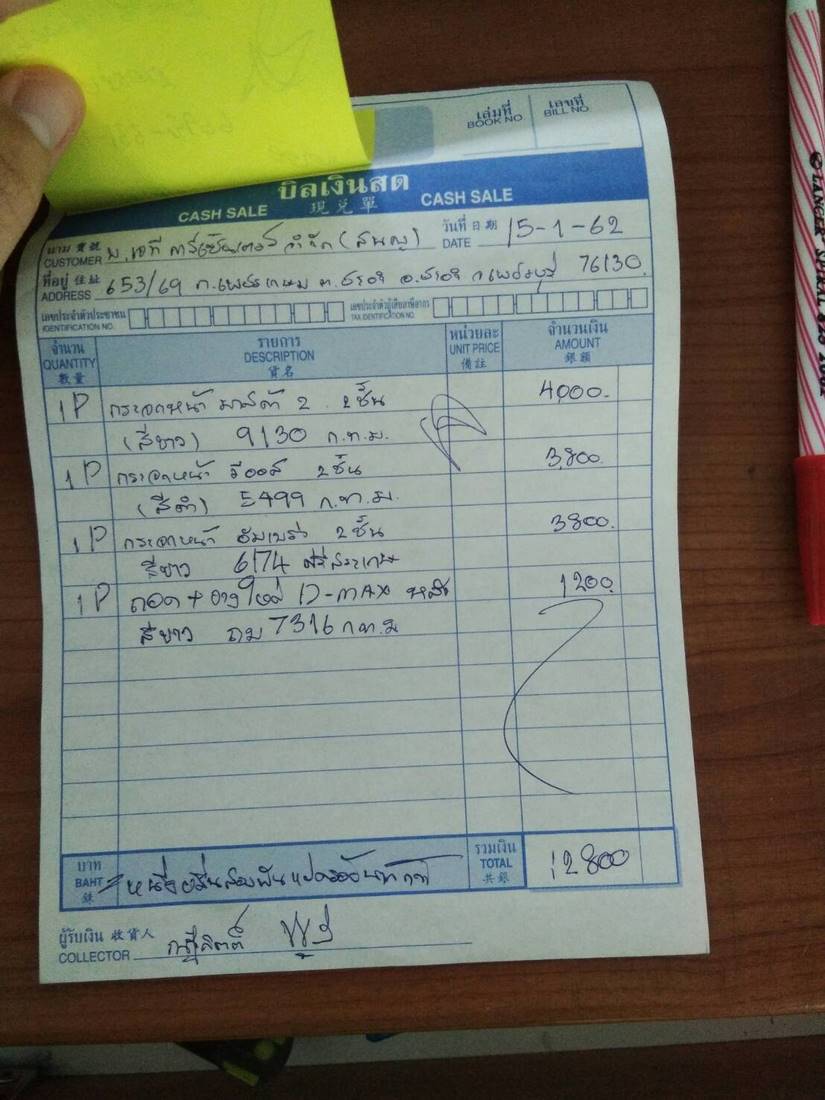 เล่มที่ เลขที่
BOOK NO BILL NO
บิลเงินสด
CASH SALE 現兑單 CASH SALE
นาม 貴號 วันที่ 日期
CUSTOMER บ. เอที คาร์เซ็นเตอร์ จำกัด DATE 15-1-62
ที่อยู่ 住址
ADDRESS 653/69 ถ.เพชรเกษม ต.ชะอำ อ.ชะอำ จ.เพชรบุรี 76130
เลขประจำตัวประชาชน เลขประจำตัวผู้เสียภาษีอากร
IDENTIFICATION NO. TAX IDENTIFICATION NO.
จำนวน รายการ หน่วยละ จำนวนเงิน
QUANTITY DESCRIPTION UNIT PRICE AMOUNT
數量 貨名 備註 銀額
1 P กระจกหน้า มาสด้า 2 2ชั้น 4,000.
(สีขาว) 9130 ก.ท.ม.
1 P กระจกหน้า วีออส 2ชั้น 3,800.
(สีดำ) 5499 ก.ท.ม.
1 P กระจกหน้า อัมเบร่า 2ชั้น 3800.
สีขาว 6174 ศรีสะเกษ
1 P ถอด + ยางใหม่ D-MAX หลัง 1200.
สีขาว ถม 7316 ก.ท.ม
บาท รวมเงิน
BAHT TOTAL 12800
銖 共銀
ผู้รับเงิน 收貨人
COLLECTOR